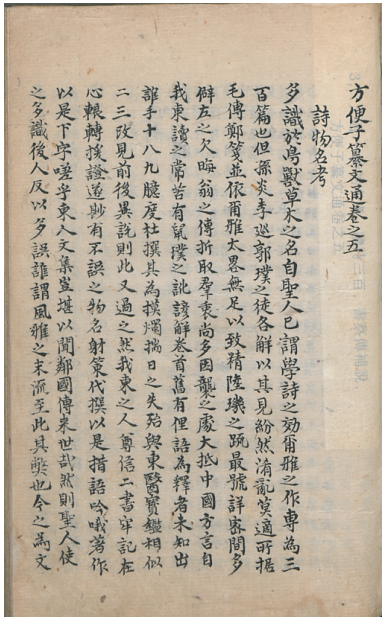 方便子纂文通卷之五
詩物名考
多識於鳥獸草木之名自聖人已謂學詩之効爾雅之作專為三
百篇也但孫炎李巡郭璞之徒各解以其見紛然淆亂莫適所據
毛傳鄭箋並依爾雅太畧無足以致精陸璣之䟽最號詳密間多
僻左之欠晦翁之傳折取羣衷尚多因襲之處大抵中國方言自
我東讀之常苦有鼠璞之訛諺解卷首舊有俚語為釋者未知出
誰手十八九臆度杜撰其為摸燭揣日之失殆與東醫寶鑑相似
二三改見前後異說則此又過之然我東之人尊信二書牢記在
心輾轉援證遂尠有不誤之物名射策代撰以是措語吟哦著作
以是下字嗟乎東人文集豈堪以聞鄰國傳來世哉然則聖人使
之多識後人反以多誤誰謂風雅之末流至此其弊也今之為文